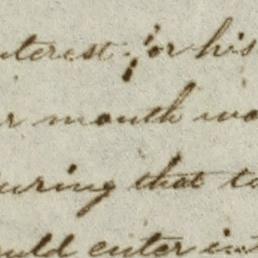 nterest for his
r month wo
uring that t
ould enter in